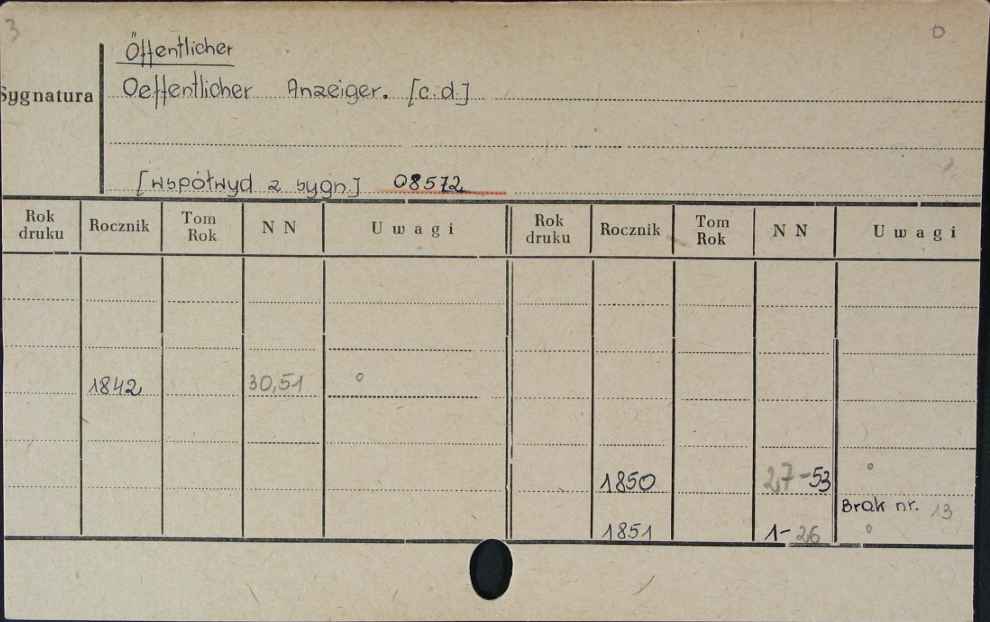 3
O
Öffentlicher
Sygnatura
Oeffentlicher Anzeiger. [c.d.]
[współwyd z sygn.] 08572
Rok druku Rocznik Tom Rok N N Uwagi Rok druku Rocznik Tom Rok N N Uwagi
1842 30,51 o
1850 27-53 o
Brak nr. 13
1851 1-26 o